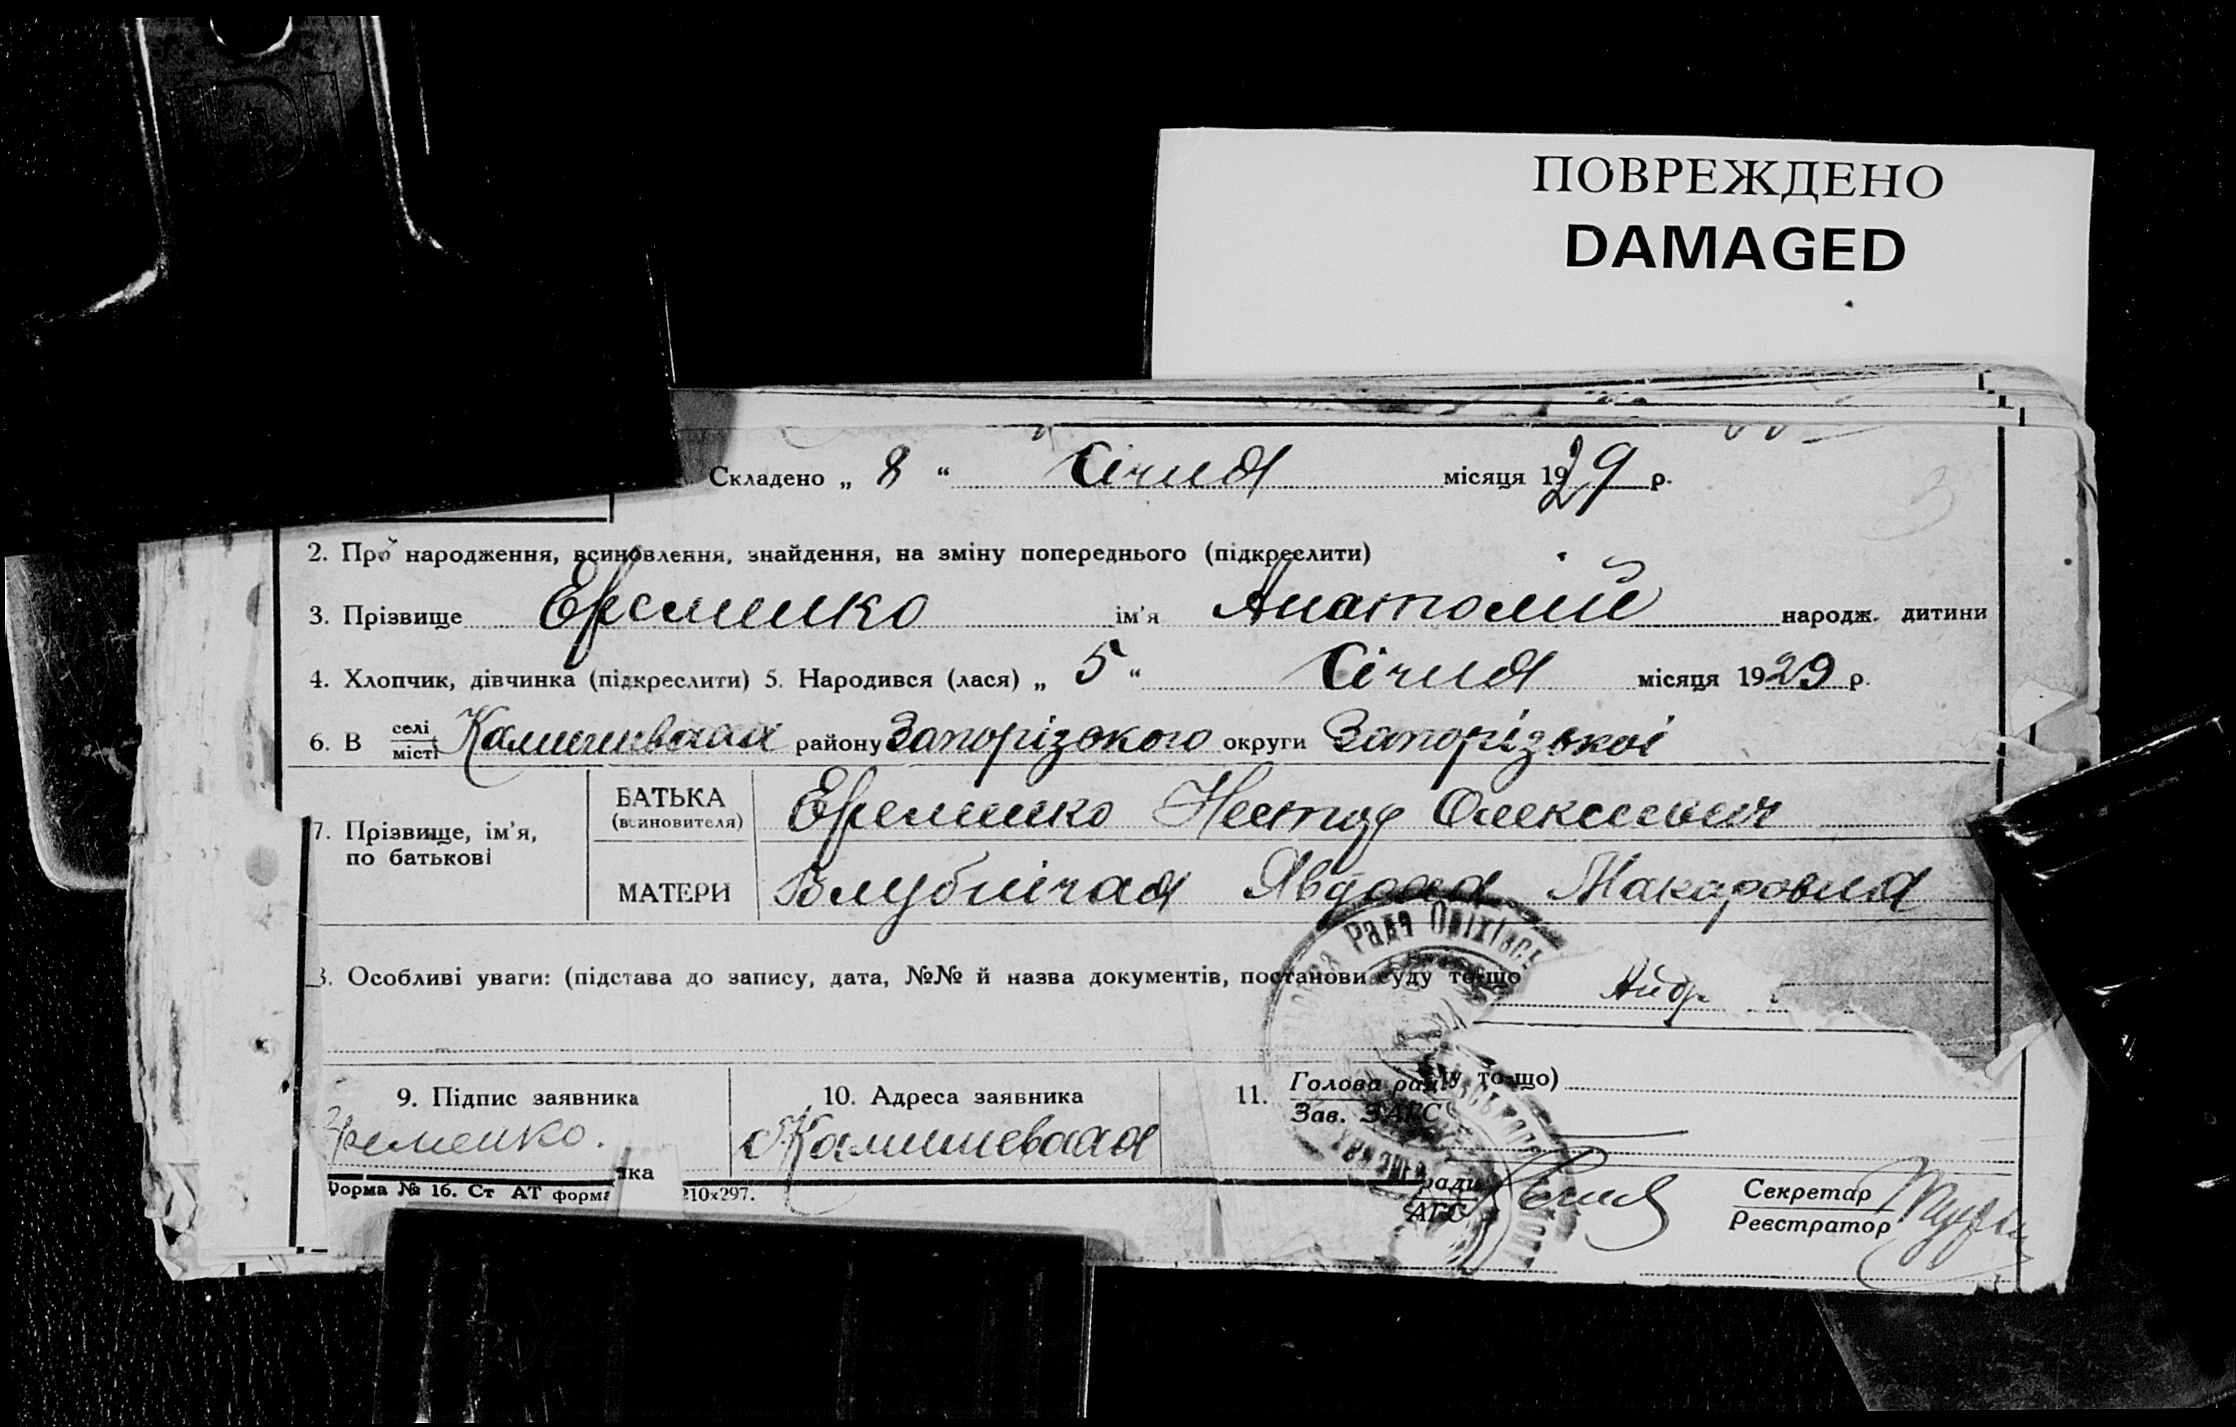 ПОВРЕЖДЕНО
DAMAGED
Складено „ 8 “ Січня місяця 1929 р.
2. Про народження, всиновлення, знайдення, на зміну попереднього (підкреслити)
3. Прізвище Еременко ім'я Анатолій народж. дитини
4. Хлопчик, дівчинка (підкреслити) 5. Народився (лася) „ 5 “ Січня місяця 1929 р.
6. В селі місті Камишеваха району Запорізького округи Запорізької
7. Прізвище, ім'я, по батькові
БАТЬКА (всиновителя) Еременко Нестор Олексієвич
МАТЕРИ Явдоха Макаровна
Рада Оріхівсь
8. Особливі уваги: (підстава до запису, дата, №№ й назва документів, постанови суду то-що
ду то-що)
9. Підпис заявника
10. Адреса заявника
11. Голова ради
Зав. ЗАГС
Еременко.
с Камишеваха
ика
Форма № 16. Ст АТ форма 210х297.
ради
АГС
Секретар
Реєстратор